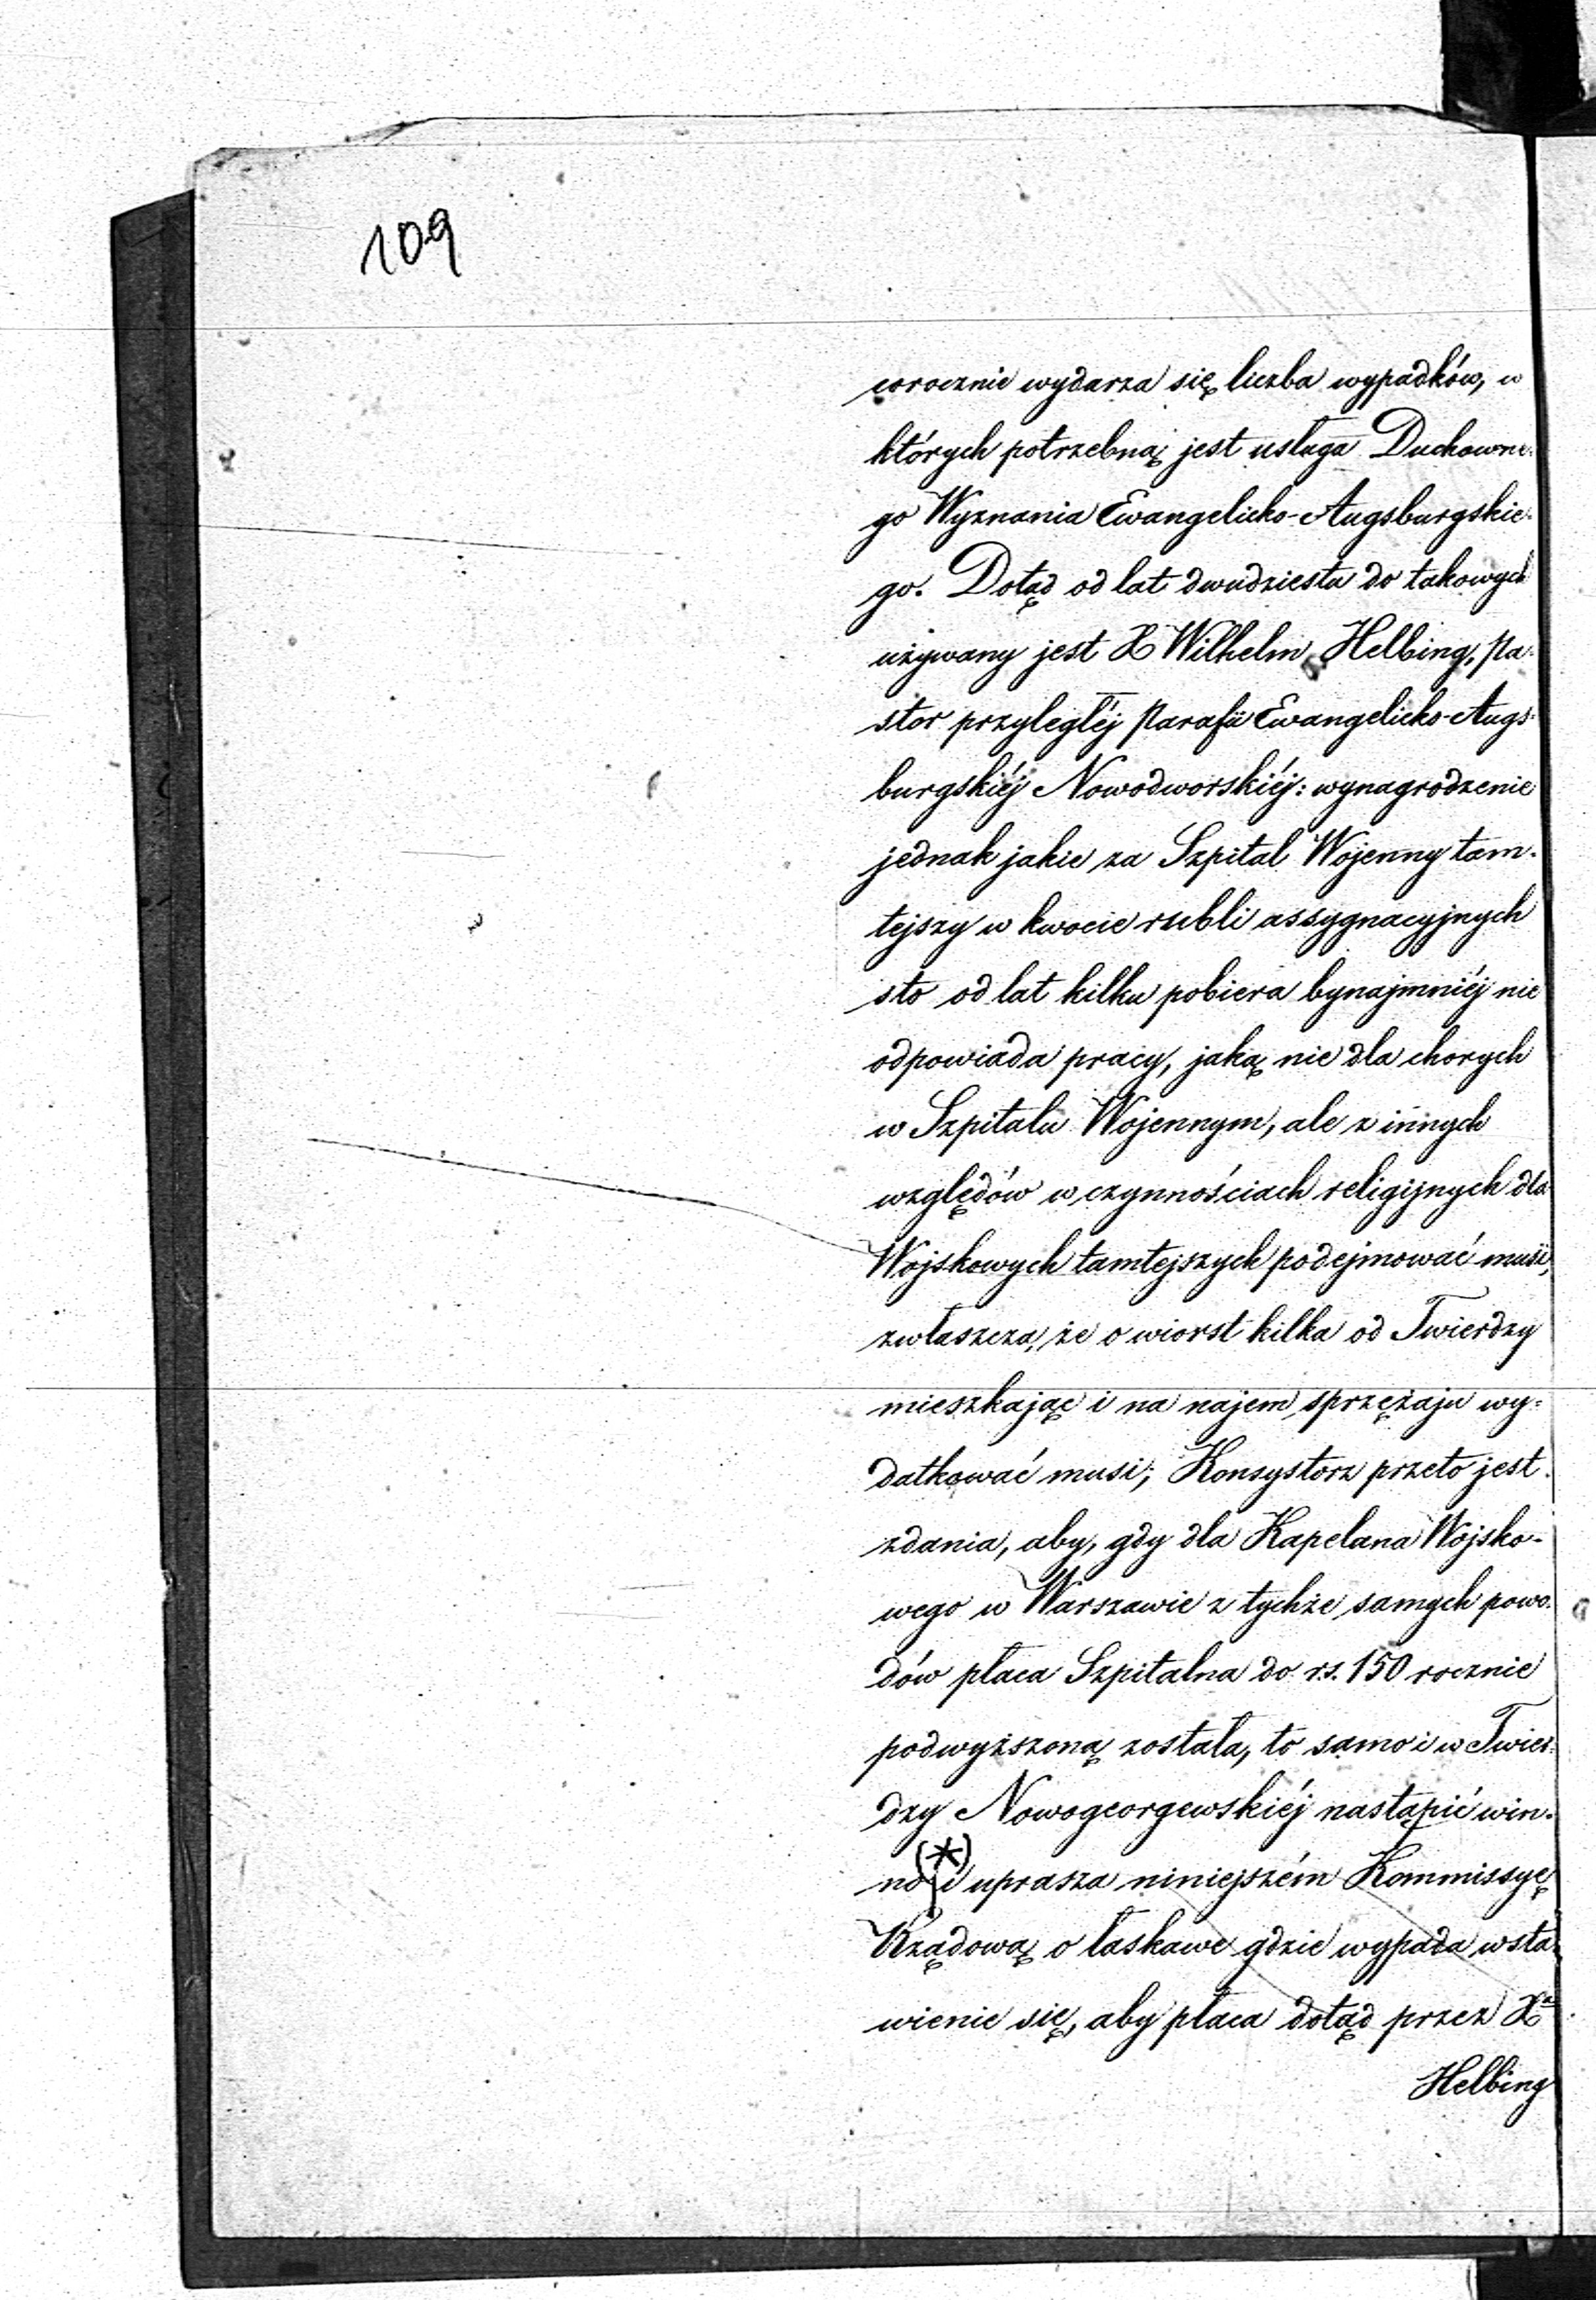 109
corocznie wydarza się liczba wypadków, w
których potrzebną jest usługa Duchowne-
go Wyznania Ewangelicko-Augsburgskie-
go. Dotąd od lat dwudziestu do takowych
używany jest X Wilhelm Helbing, Pa-
stor przyległéj Parafii Ewangelicko-Augs-
burgskiéj Nowodworskiéj: wynagrodzenie
jednak jakie za Szpital Wojenny tam-
tejszy w kwocie rubli assygnacyjnych
sto od lat kilku pobiera bynajmniéj nie
odpowiada pracy, jaką nie dla chorych
w Szpitalu Wojennym, ale z innych
względów w czynnościach religijnych dla
Wojskowych tamtejszych podejmować musi,
zwłaszcza, że o wiorst kilka od Twierdzy
mieszkając i na najem sprzężaju wy-
datkować musi; Konsystorz przeto jest
zdania, aby, gdy dla Kapelana Wojsko-
wego w Warszawie z tychże samych powo-
dów płaca Szpitalna do r.s. 150 rocznie
podwyższoną została, to samo i w Twier-
dzy Nowogeorgewskiéj nastąpić win-
no (*) i uprasza niniejszém Kommissyę
Rządową o łaskawe gdzie wypada wsta-
wienie się, aby płaca dotąd przez Xa
Helbing